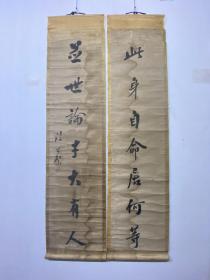 此身自命居何等
並世論才大有人